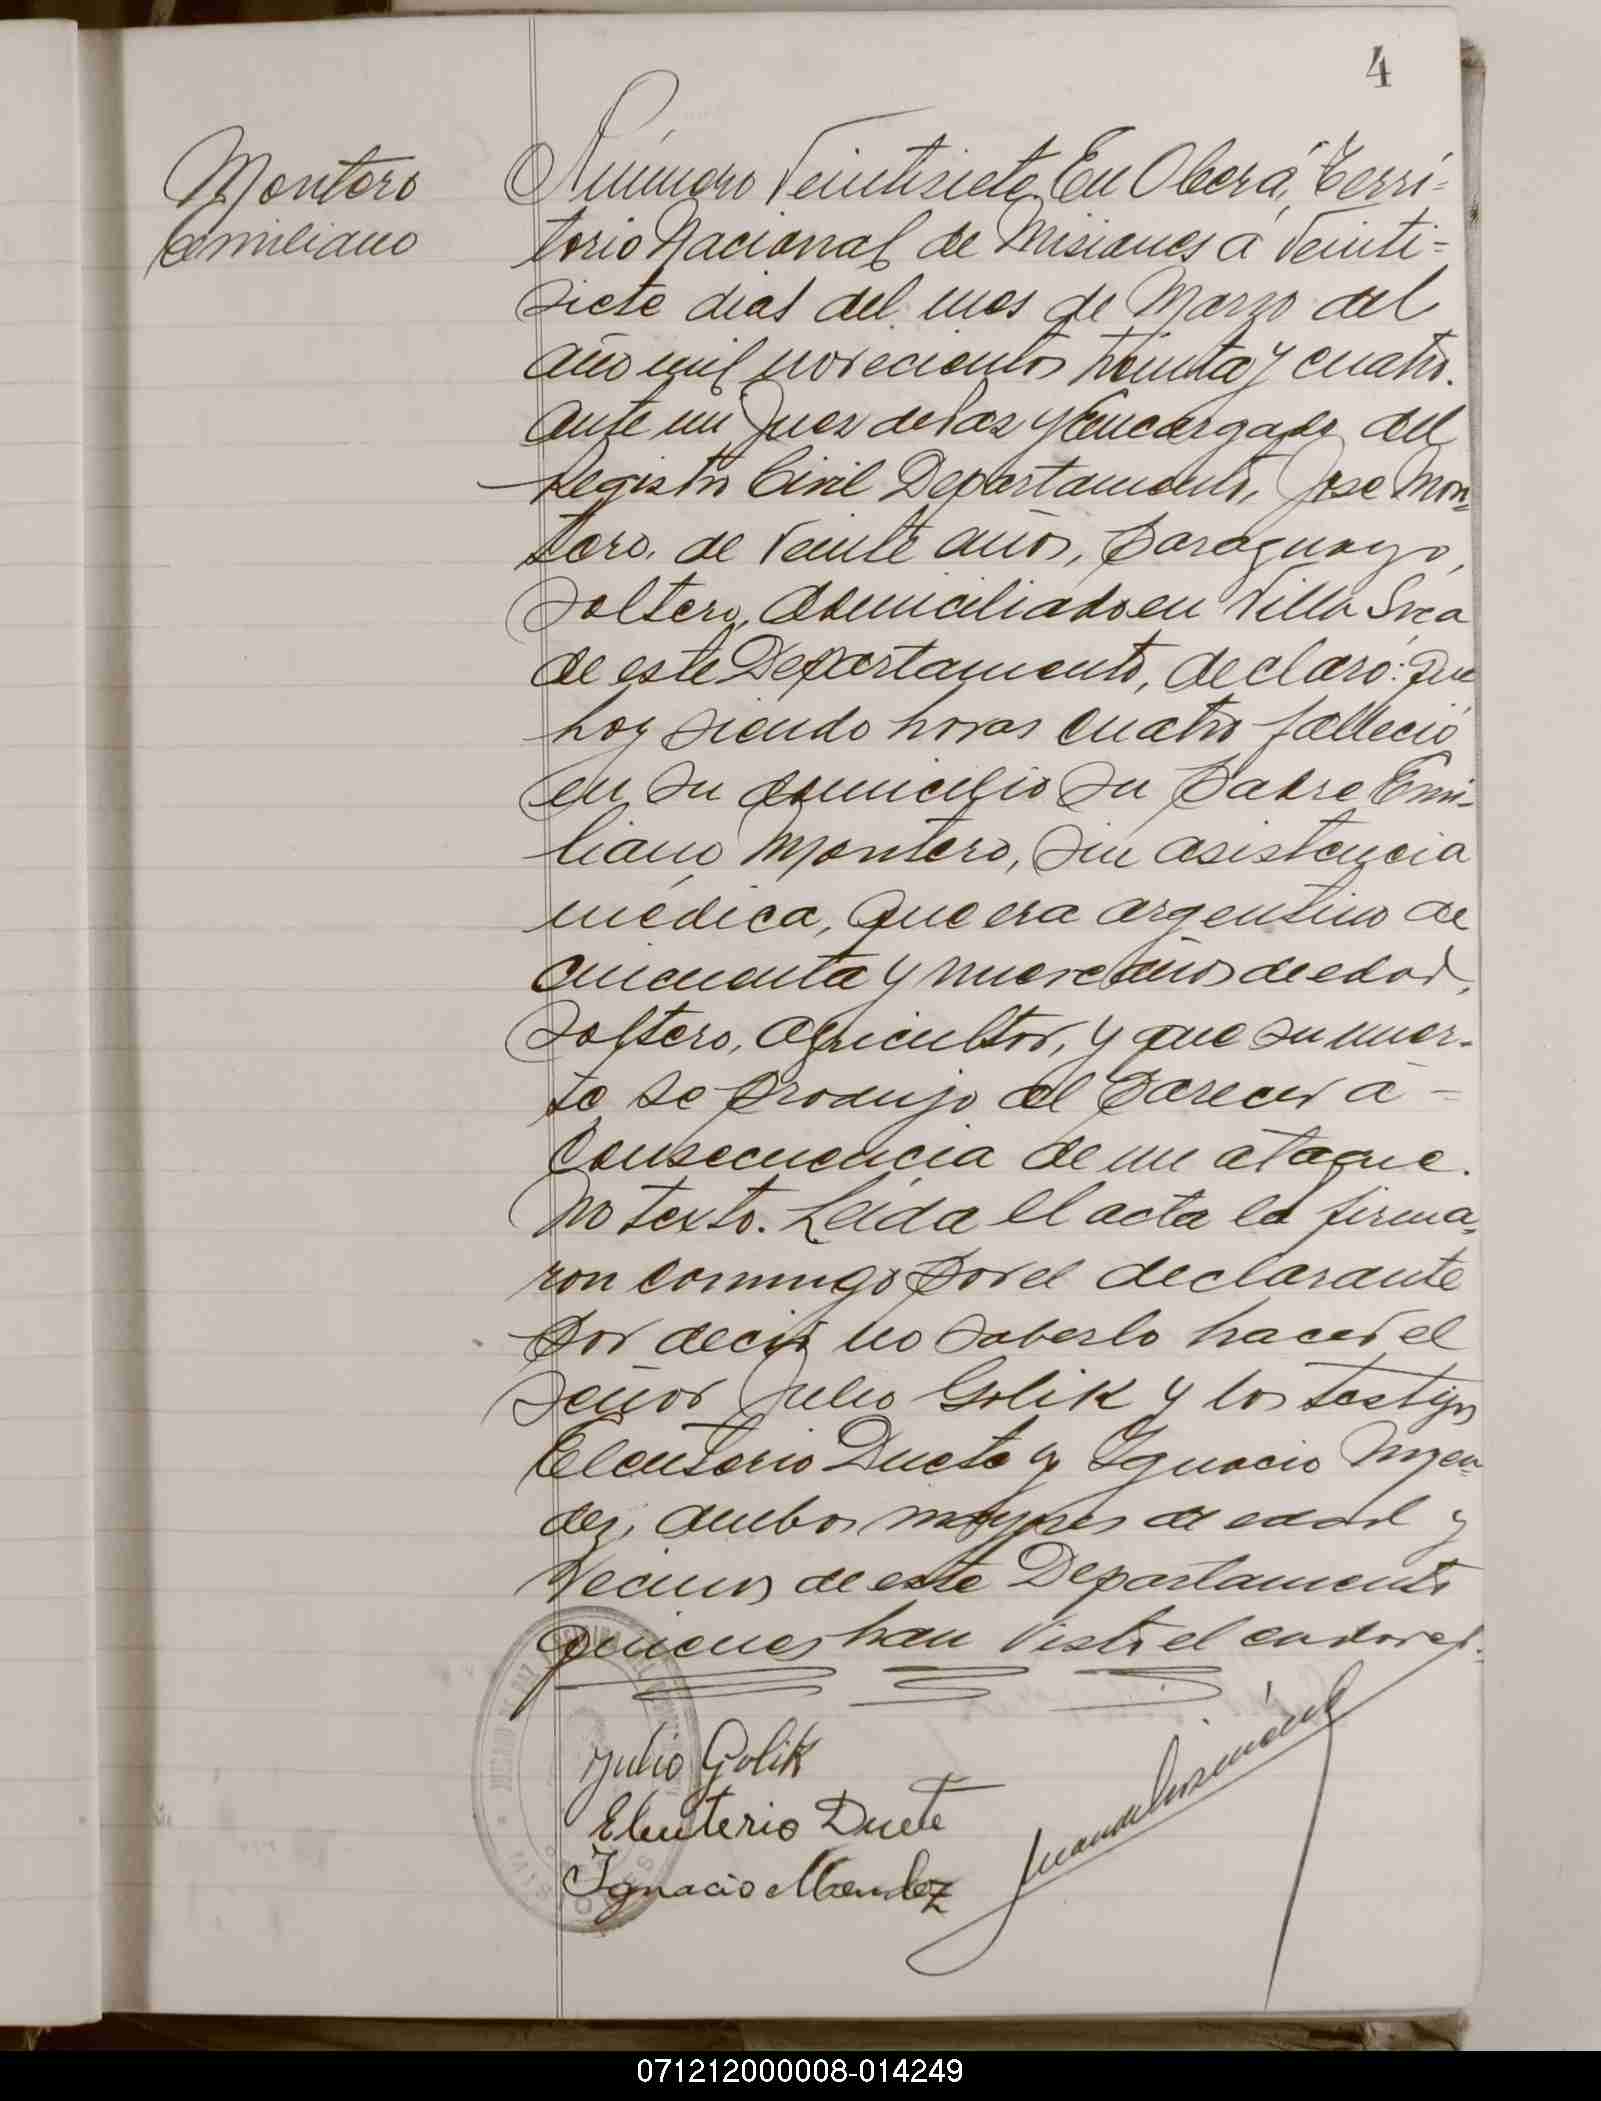 4
Montero
Emiliano
Número Veintisiete. En Oberá, Terri=
torio Nacional de Misiones a Veinti=
siete dias del mes de Marzo del
año mil novecientos treinta y cuatro.
ante mi Juez de Paz y Encargado del
Registro Civil Departamento, Jose Mon=
tero, de veinte años, Paraguayo,
Soltero, domiciliado en Villa Svea
de este Departamento, declaró: Que
hoy siendo horas cuatro falleció
en su domicilio su Padre Emi-
liano Montero, sin asistencia
médica, que era argentino de
cincuenta y nueve años de edad,
Soltero, agricultor, y que su muer-
te se produjo al parecer a -
Consecuencia de un ataque.
No testo. Leida el acta la firma=
ron conmigo por el declarante
por decir no saberlo hacer el
Señor Julio Golik y los testigos
Eleuterio Duete y Ignacio Men=
dez, ambos mayores de edad y
Vecinos de este Departamento
quienes han visto el cadaver.
Julio Golik
Eleuterio Duete
Ignacio Mendez
071212000008-014249